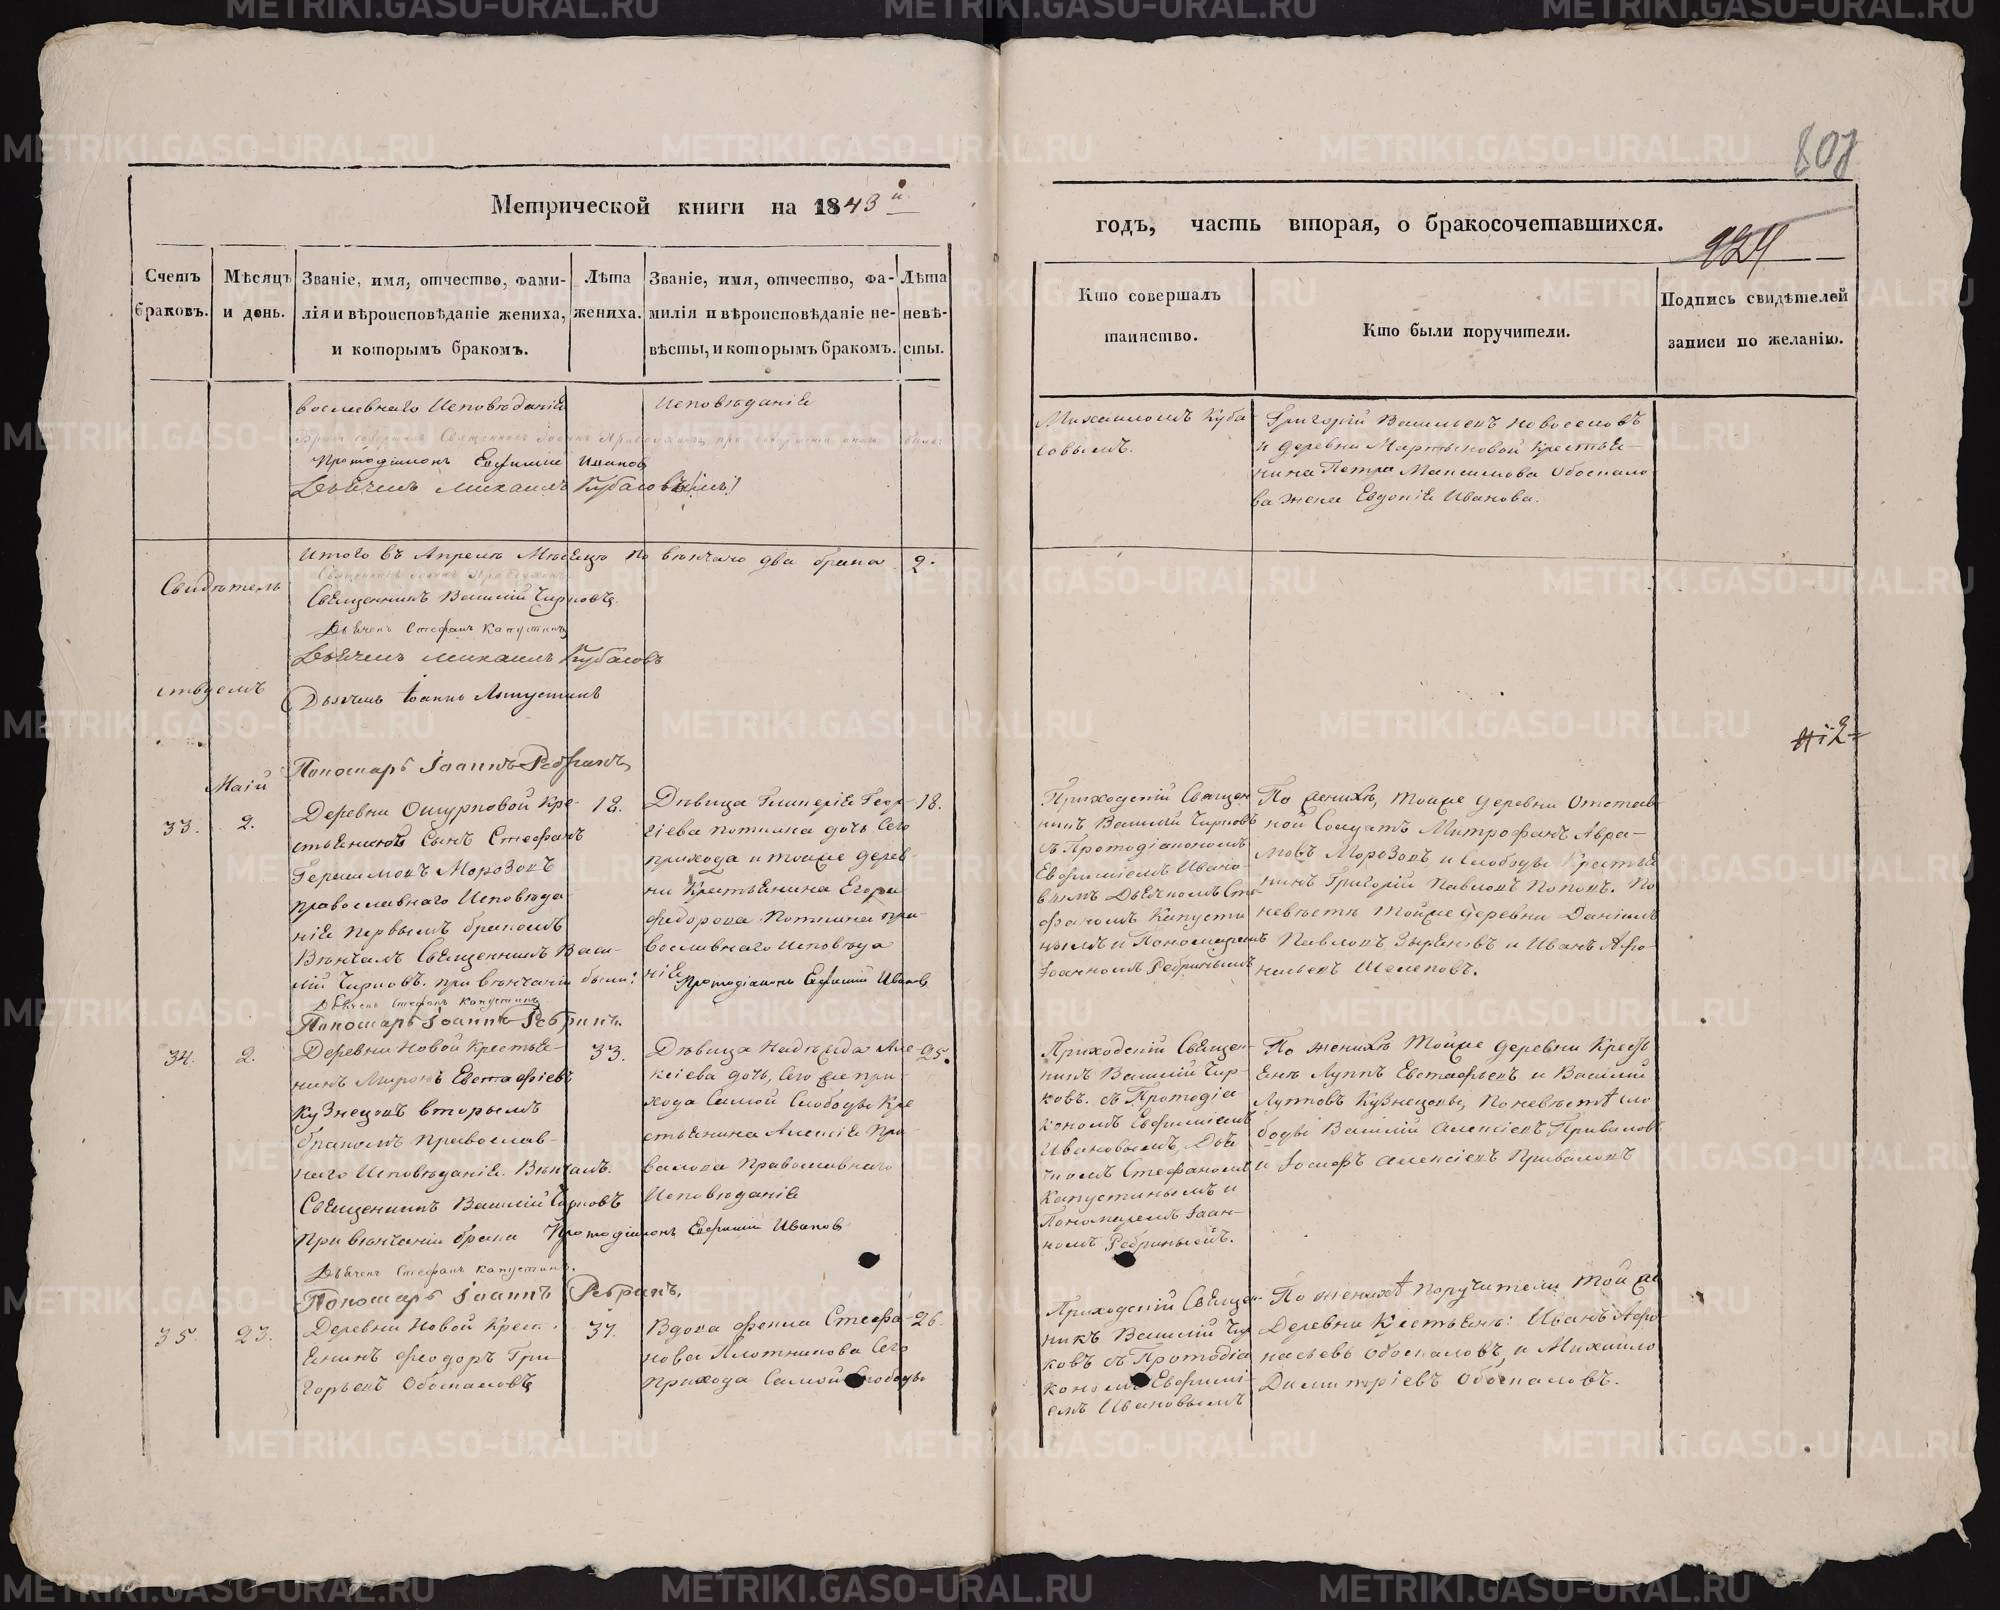 808
Метрической книги на 1843 й
годъ, часть вторая, о бракосочетавшихся.
224
Счетъ браковъ.
Мѣсяцъ и день.
Званіе, имя, отчество, фами-
лія и вѣроисповѣданіе жениха,
и которымъ бракомъ.
Лѣта
жениха.
Званіе, имя, отчество, фа-
милія и вѣроисповѣданіе не-
вѣсты, и которымъ бракомъ.
Лѣта
невѣ-
сты.
Кто совершалъ
таинство.
Кто были поручители.
Подпись свидѣтелей
записи по желанію.
вославнаго Исповѣданія
Исповѣданія
Протодіаконъ Евфимій Ивановъ
Дьячекъ Михаилъ Кубасовъ
Михаиломъ Куба
совымъ.
Григорій Васильевъ Новоселовъ
и деревни Мартыновой крестья-
нина Петра Максимова Обоскало
ва жена Евдокія Иванова.
Итого въ Апрелѣ Мѣсяцѣ по вѣнчано два брака 2.
Свидѣтель
Священникъ Василій Чирковъ.
Дьячекъ Стефанъ Капустинъ
Дьячекъ Михаилъ Кубасовъ
ствуемъ
Дьячекъ Іоаннъ Капустинъ
Пономарь Іоаннъ Ребринъ
Маій
33. 2.
Деревни Ошурковой Кре-
стьянинъ Сынъ Стефанъ
Герасимовъ Морозовъ
православнаго Исповѣда
нія первымъ бракомъ
Вѣнчалъ Священникъ Васи-
лій Чирковъ. при вѣнчаніи были:
Дьячекъ Стефанъ Капустинъ
Пономарь Іоаннъ Ребринъ.
18.
Дѣвица Гликерія Геор-
гіева Поткина дочь Сего
прихода и тойже дерев-
ни Крестьянина Егора
Федорова Поткина пра-
вославнаго Исповѣда
нія
Протодіаконъ Евфимій Ивановъ
18.
Приходскій Священ
никъ Василій Чирковъ
съ Протодіакономъ
Евфиміемъ Ивано-
вымъ Дьячкомъ Сте
фаномъ Капусти
нымъ и Пономаремъ
Іоанномъ Ребринымъ
По женихѣ, тойже деревни Отстав
ной Солдатъ Митрофанъ Авра-
мовъ Морозовъ и Слободы Крестья
нинъ Григорій Павловъ Поповъ. По
невѣстѣ тойже деревни Даніилъ
Павловъ Зыряновъ и Иванъ Афо-
насьевъ Шелеповъ.
34. 2.
Деревни Новой Крестья-
нинъ Миронъ Евстафіевъ
Кузнецовъ вторымъ
бракомъ Православ-
наго Исповѣданія. Вѣнчалъ.
Священникъ Василій Чирковъ
При вѣнчаніи брака Протодіаконъ Евфимій Ивановъ
Дьячекъ Стефанъ Капустинъ.
Пономарь Іоаннъ Ребринъ.
33.
Дѣвица Надежда Але-
ксіева дочь, Сего же при-
хода Самой Слободы Кре
стьянина Алексія При-
валова Православнаго
Исповѣданія
25.
Приходскій Священ-
никъ Василій Чир-
ковъ. съ Протодіа
кономъ Евфиміемъ
Ивановымъ, Дья
чкомъ Стефаномъ
Капустинымъ и
Пономаремъ Іоан-
номъ Ребринымъ.
По женихѣ Тойже деревни Кресть
яне Луппъ Евстафьевъ и Василій
Лупповъ Кузнецовы, По невѣстѣ сло
боды Василій Алексіевъ Приваловъ
и Іосифъ Алексіевъ Приваловъ
35. 23.
Деревни Новой Крест
янинъ Феодоръ Гри-
горьевъ Обоскаловъ
37.
Вдова Фекла Стефа-
нова Плотникова Сего
прихода Самой Слободы
26.
Приходскій Священ-
никъ Василій Чир
ковъ съ Протодіа
кономъ Евфимі-
емъ Ивановымъ
По женихѣ поручители Тойже
Деревни Крестьяне: Иванъ Афо-
насьевъ Обоскаловъ, и Михайло
Димитріевъ Обоскаловъ.